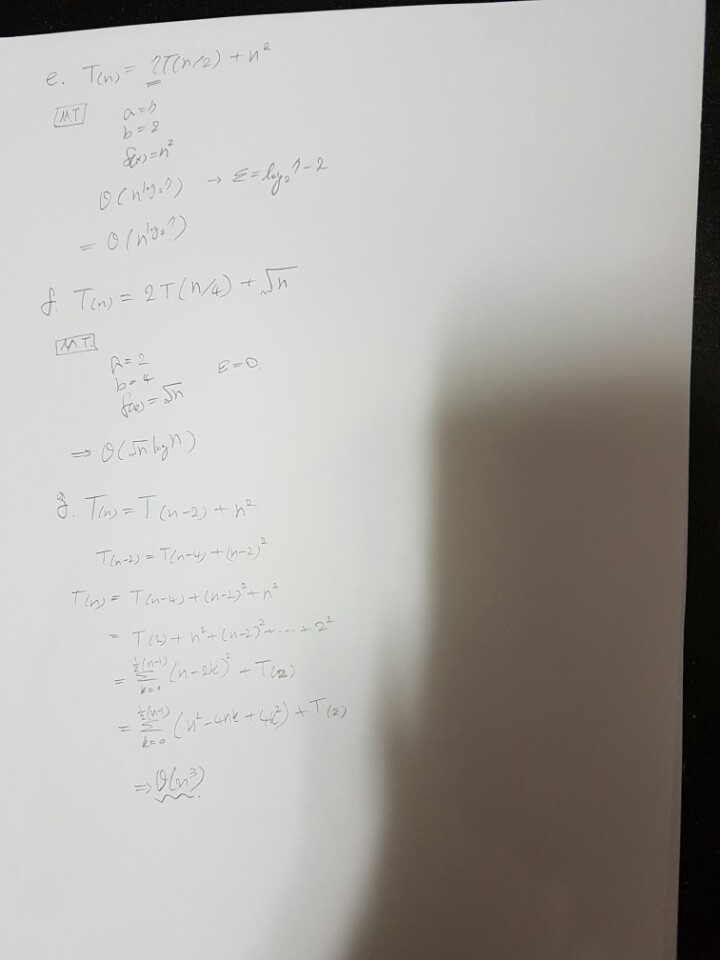 e. T(n) = 7T(n/2) + n²
M.T.
a=7
b=2
f(x)=n²
θ(n^log₂7) → ε=log₂7-2
= θ(n^log₂7)
f. T(n) = 2T(n/4) + √n
M.T.
a=2
b=4 ε=0.
f(x)=√n
⇒ θ(√n log n)
g. T(n) = T(n-2) + n²
T(n-2) = T(n-4) + (n-2)²
T(n) = T(n-4) + (n-2)² + n²
= T(2) + n² + (n-2)² + ... + 2²
= Σ_{k=0}^{½(n-1)} (n-2k)² + T(2)
= Σ_{k=0}^{½(n-1)} (n²-4nk+4k²) + T(2)
⇒ θ(n³)